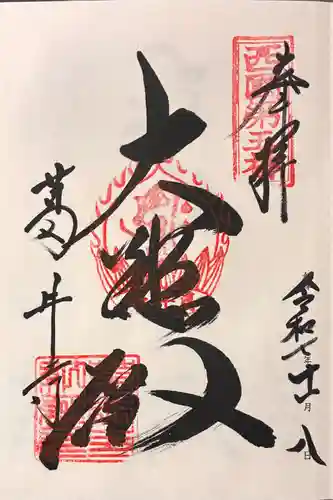 奉拝
西国第五番
令和七年十一月八日
大悲殿
葛井寺